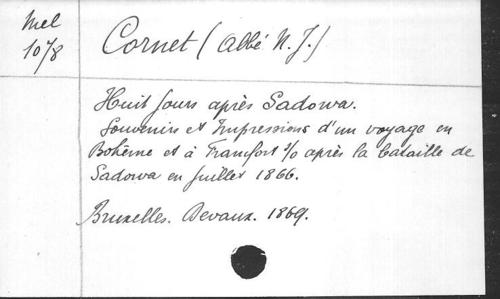 Mel
1078
Cornet (Abbé N.J.)
Huit Jours après Sadowa.
Souvenirs et Impressions d'un voyage en
Bohème et à Francfort s/o après la bataille de
Sadowa en Juillet 1866.
Bruxelles. Devaux. 1869.